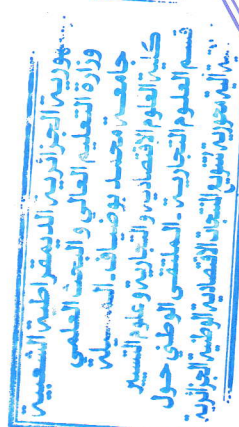 جمهورية الجزائرية الديمقراطية الشعبية
وزارة التعليم العالي و البحث العلمي
جامعة محمد بوضياف المسيلة
كلية العلوم الاقتصادية والتجارية وعلوم التسيير
قسم العلوم التجارية - الملتقى الوطني حول
آلية محورية لتنويع المنتجات الاقتصادية الوطنية الجزائرية